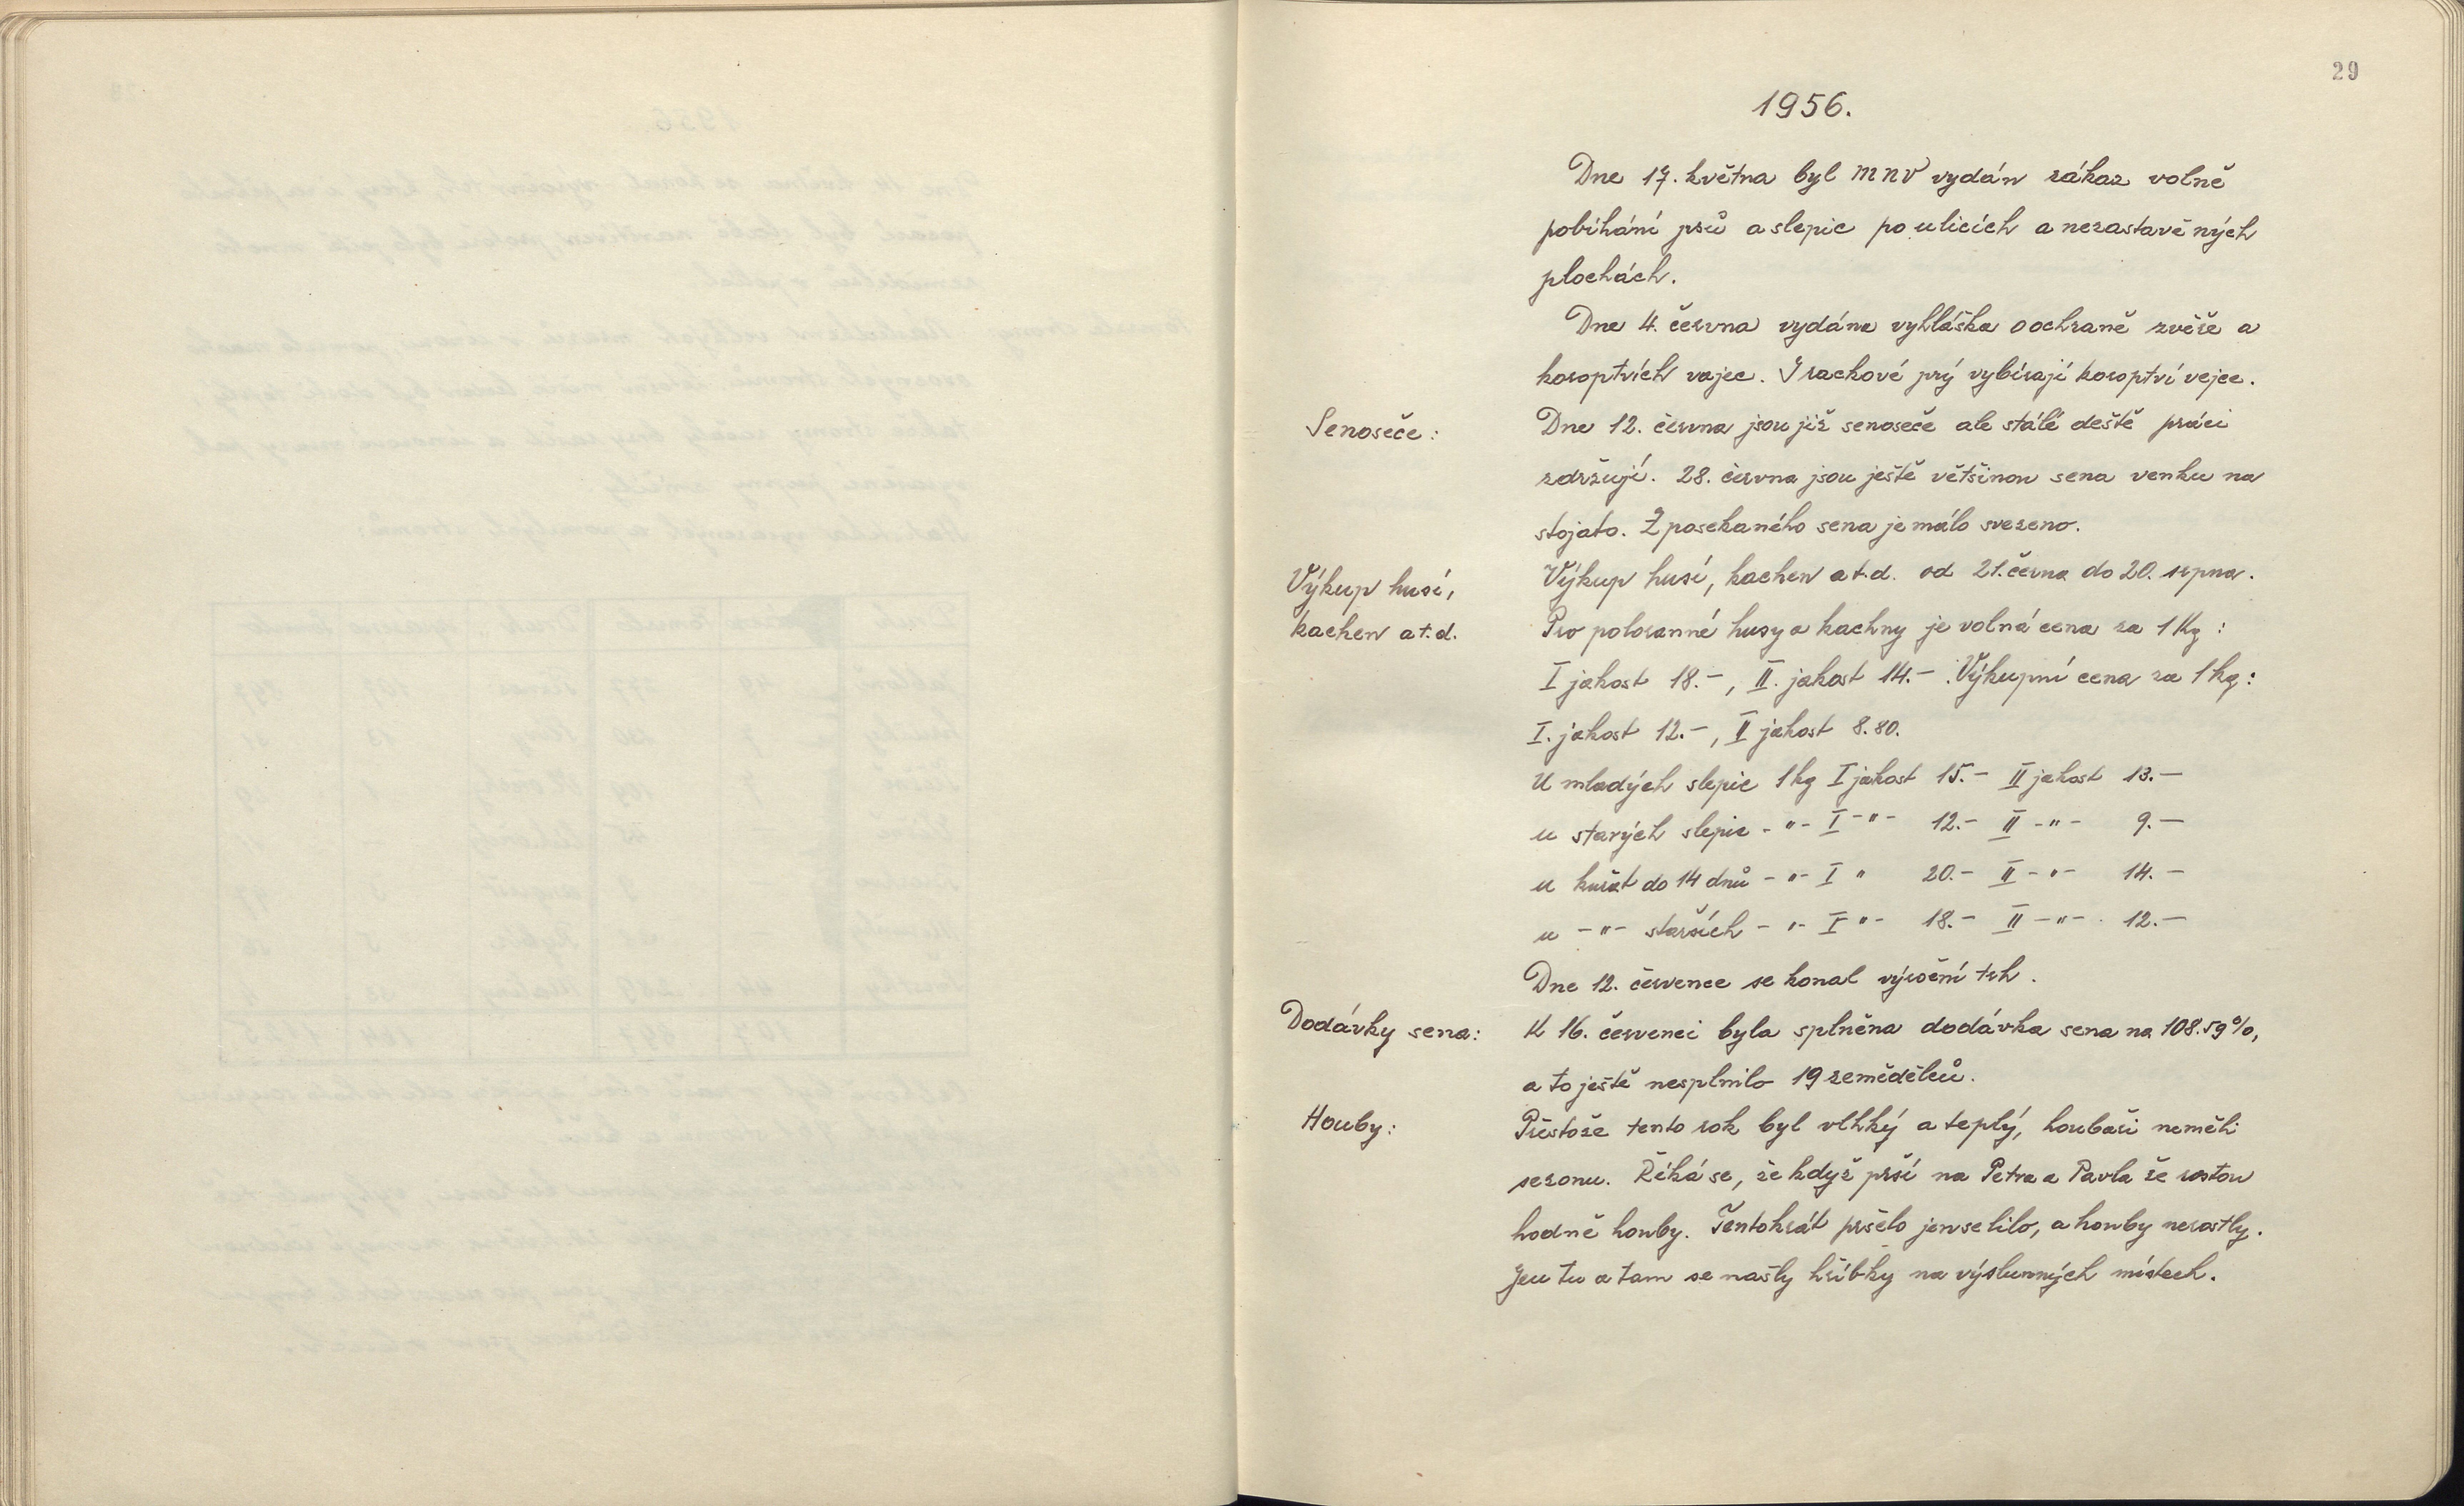 29
1956.
Dne 17. května byl MNV vydán zákaz volně
pobíhání psů a slepic po ulicích a nezastavěných
plochách.
Dne 4. června vydána vyhláška o ochraně zvěře a
koroptvích vajec. Žračkové prý vybírají koroptví vejce.
Senoseče:
Dne 12. června jsou již senoseče ale stálé deště práci
zdržují. 28. června jsou ještě většinou sena venku na
stojato. Z posekaného sena je málo svezeno.
Výkup husí,
kachen a t.d.
Výkup husí, kachen a t.d. od 21. června do 20. srpna.
Pro poloranné husy a kachny je volná cena za 1 Kg:
I jakost 18.-, II. jakost 14.-. Výkupní cena za 1 kg:
I. jakost 12.-, II jakost 8.80.
U mladých slepic 1 kg I jakost 15.- II jakost 13.-
u starých slepic -"- I -"- 12.- II -"- 9.-
u kuřat do 14 dnů -"- I " 20.- II -"- 14.-
u -"- starších -"- I "- 18.- II -"- 12.-
Dne 12. července se konal výroční trh.
Dodávky sena:
K 16. červenci byla splněna dodávka sena na 108.59%,
a to ještě nesplnilo 19 zemědělců.
Houby:
Přestože tento rok byl vlhký a teplý, houbaři neměli
sezonu. Říká se, že když prší na Petra a Pavla že rostou
hodně houby. Tentokrát pršelo jen se lilo, a houby nerostly.
Jen tu a tam se našly hříbky na výslunných místech.